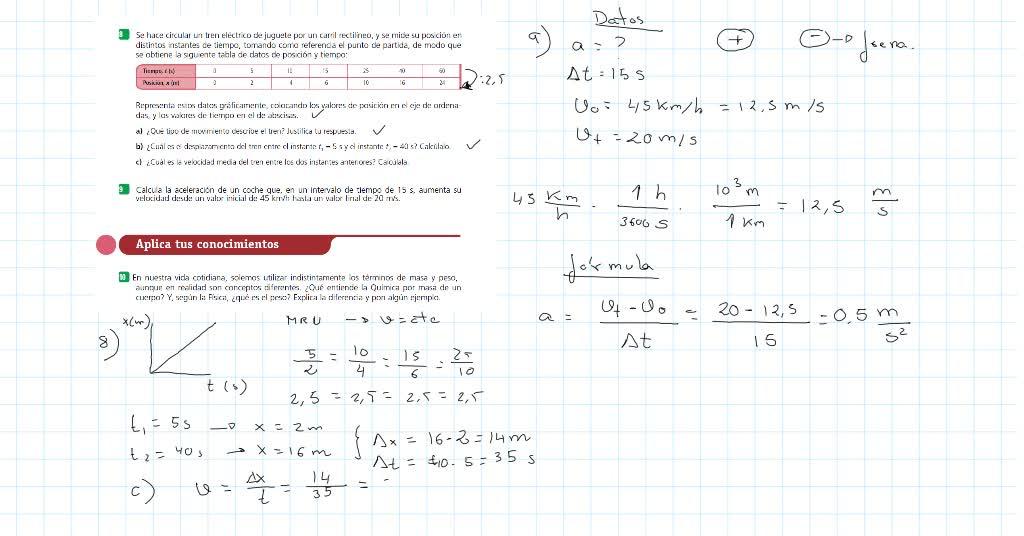 8 Se hace circular un tren eléctrico de juguete por un carril rectilíneo, y se mide su posición en
distintos instantes de tiempo, tomando como referencia el punto de partida, de modo que
se obtiene la siguiente tabla de datos de posición y tiempo:
Tiempo, t (s) 0 5 10 15 25 40 60
Posición, x (m) 0 2 4 6 10 16 24
: 2,5
Representa estos datos gráficamente, colocando los valores de posición en el eje de ordena-
das, y los valores de tiempo en el de abscisas. ✓
a) ¿Qué tipo de movimiento describe el tren? Justifica tu respuesta. ✓
b) ¿Cuál es el desplazamiento del tren entre el instante t₁ = 5 s y el instante t₂ = 40 s? Calcúlalo. ✓
c) ¿Cuál es la velocidad media del tren entre los dos instantes anteriores? Calcúlala.
9 Calcula la aceleración de un coche que, en un intervalo de tiempo de 15 s, aumenta su
velocidad desde un valor inicial de 45 km/h hasta un valor final de 20 m/s.
Aplica tus conocimientos
10 En nuestra vida cotidiana, solemos utilizar indistintamente los términos de masa y peso,
aunque en realidad son conceptos diferentes. ¿Qué entiende la Química por masa de un
cuerpo? Y, según la Física, ¿qué es el peso? Explica la diferencia y pon algún ejemplo.
8)
x(m)
t (s)
MRU → v = cte
5/2 = 10/4 = 15/6 = 25/10
2,5 = 2,5 = 2,5 = 2,5
t₁ = 5 s → x = 2 m
t₂ = 40 s → x = 16 m
Δx = 16 - 2 = 14 m
Δt = 40 - 5 = 35 s
c) v = Δx/t = 14/35 =
9) Datos
a = ?
+
- → frena
Δt = 15 s
v₀ = 45 km/h = 12,5 m/s
vf = 20 m/s
45 km/h · 1 h/3600 s · 10³ m/1 km = 12,5 m/s
fórmula
a = vf - v₀/Δt = 20 - 12,5/15 = 0,5 m/s²